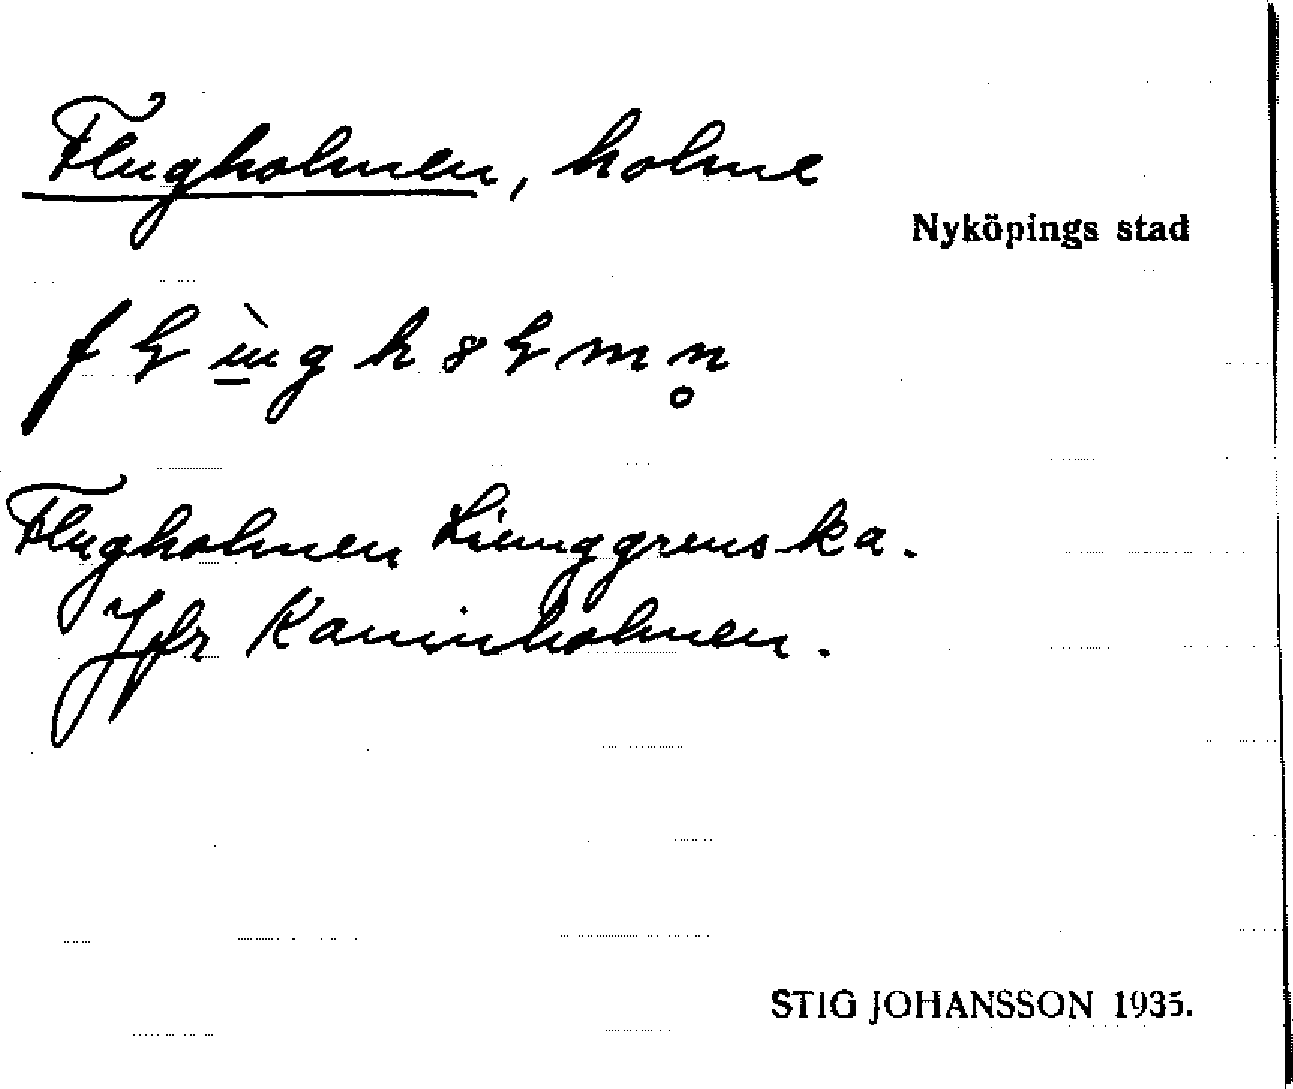 Flugholmen, holme
Nyköpings stad
Flugholmen Liunggrenska.
Jfr Kaninholmen.
STIG JOHANSSON 1935.